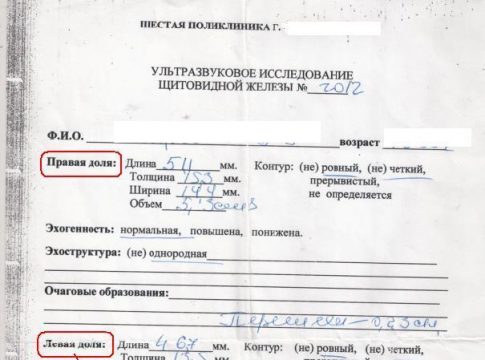 ШЕСТАЯ ПОЛИКЛИНИКА Г.
УЛЬТРАЗВУКОВОЕ ИССЛЕДОВАНИЕ
ЩИТОВИДНОЙ ЖЕЛЕЗЫ №
Ф.И.О. возраст
Правая доля: Длина мм. Контур: (не) ровный, (не) четкий,
Толщина 153 мм. прерывистый,
Ширина 144 мм. не определяется
Объем
Эхогенность: нормальная, повышена, понижена.
Эхоструктура: (не) однородная
Очаговые образования:
Левая доля: Длина 467 мм. Контур: (не) ровный, (не) четкий,
Толщина мм.